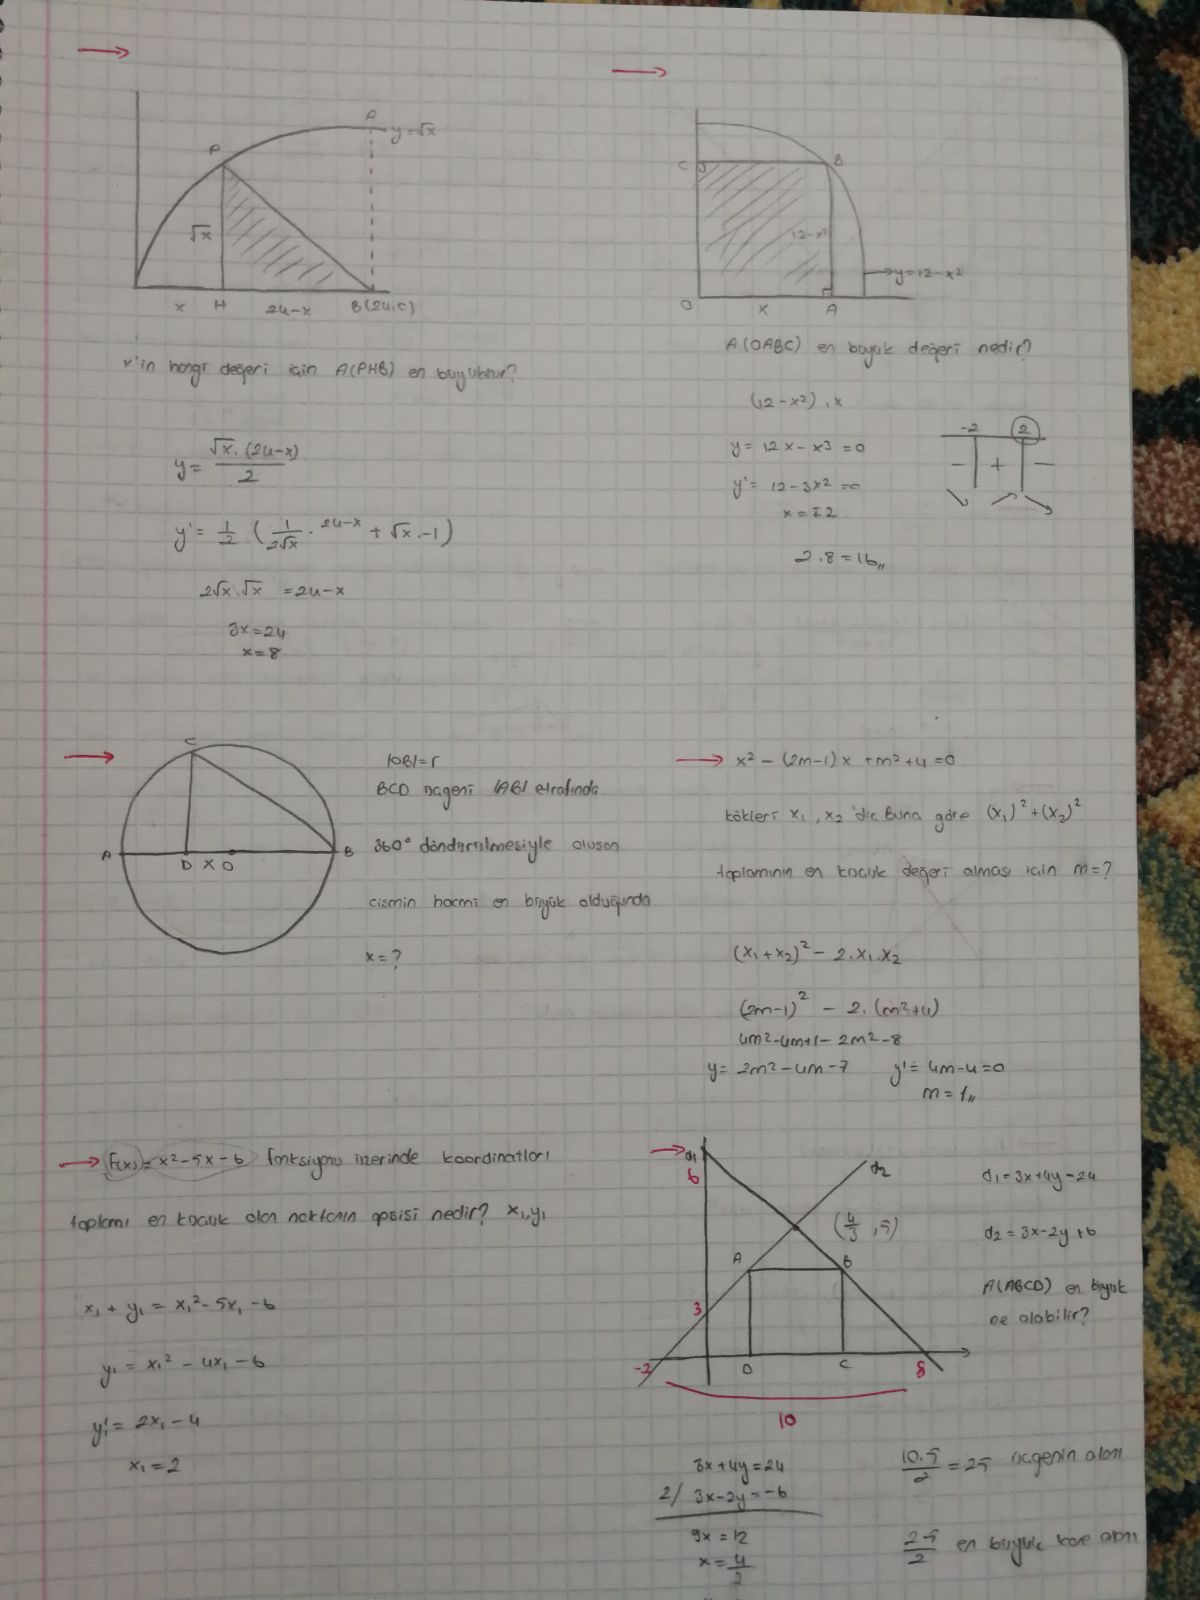 A
y=√x
P
√x
x H 24-x B(24,0)
x'in hangi değeri için A(PHB) en büyüktür?
y = √x.(24-x) / 2
y' = 1/2 (1/2√x . 24-x + √x.-1)
2√x.√x = 24-x
3x=24
x=8
C B
12-x²
y=12-x²
O x A
A(OABC) en büyük değeri nedir?
(12-x²).x
y = 12x-x³ =0
y' = 12-3x² =0
x=∓2
2.8=16,,
-2 2
- + -
C
A D x O B
|OB|=r
BCD üçgeni |AB| etrafında
360° döndürülmesiyle oluşan
cismin hacmi en büyük olduğunda
x=?
x² - (2m-1)x + m²+4 =0
kökleri x₁, x₂ 'dir. Buna göre (x₁)²+(x₂)²
toplamının en küçük değeri alması için m=?
(x₁+x₂)² - 2.x₁.x₂
(2m-1)² - 2.(m²+4)
4m²-4m+1-2m²-8
y= 2m²-4m-7 y'= 4m-4=0
m=1,,
f(x)= x²-5x-6 fonksiyonu üzerinde koordinatları
toplamı en küçük olan noktanın apsisi nedir? x₁,y₁
x₁ + y₁ = x₁²-5x₁-6
y₁ = x₁² - 4x₁-6
y₁' = 2x₁-4
x₁=2
d₁
6
d₂
(4/3 ,5)
A B
3
-2 D C 8
10
d₁=3x+4y-24
d₂=3x-2y+6
A(ABCD) en büyük
ne olabilir?
3x+4y=24
2/ 3x-2y=-6
9x=12
x=4/3
10.5/2 =25 üçgenin alanı
25/2 en büyük kare alanı